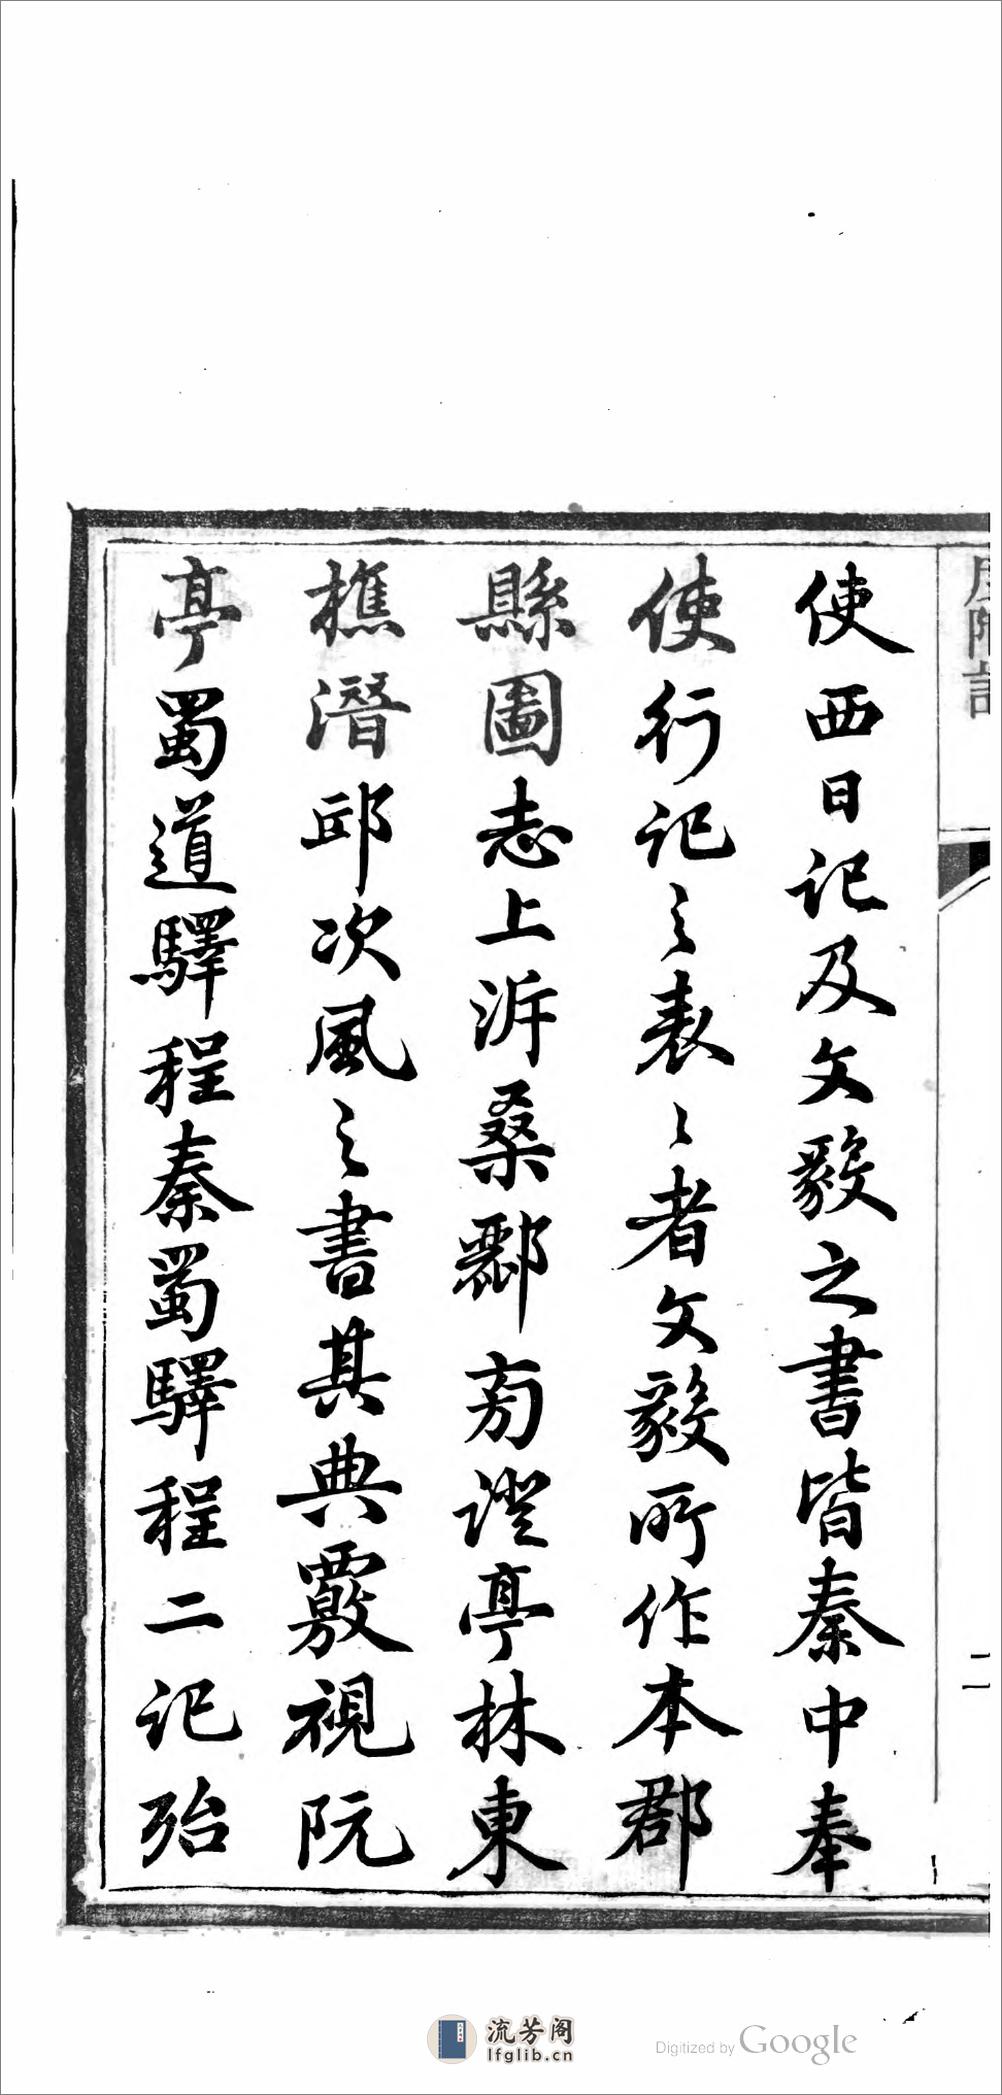 使西日記及文毅之書皆秦中奉
使行記之表〻者文毅所作本郡
縣圖志上泝桑酈㫄證亭林東
樵潛邱次風之書其典覈視阮
亭蜀道驛程秦蜀驛程二記殆
二
流芳阁
lfglib.cn
Digitized by Google